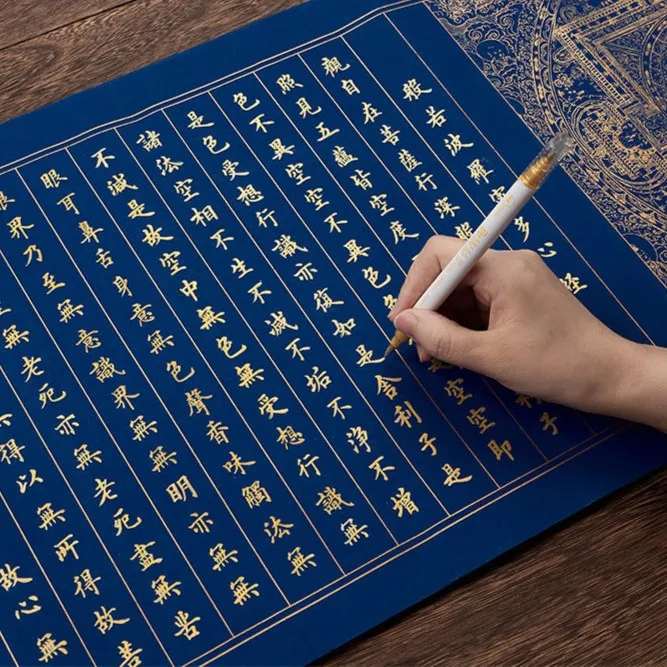 般若波羅多心經
觀自在菩薩行深子
照見五蘊皆空度
色不異空空不異色空空即
是色受想行識亦復如是舍利子是
諸法空相不生不滅不垢不淨不增
不滅是故空中無色無受想行識無
眼耳鼻舌身意無色聲香味觸法無
眼界乃至無意識界無無明亦無無
無老死亦無老死盡無苦
得以無所得故菩
故心無